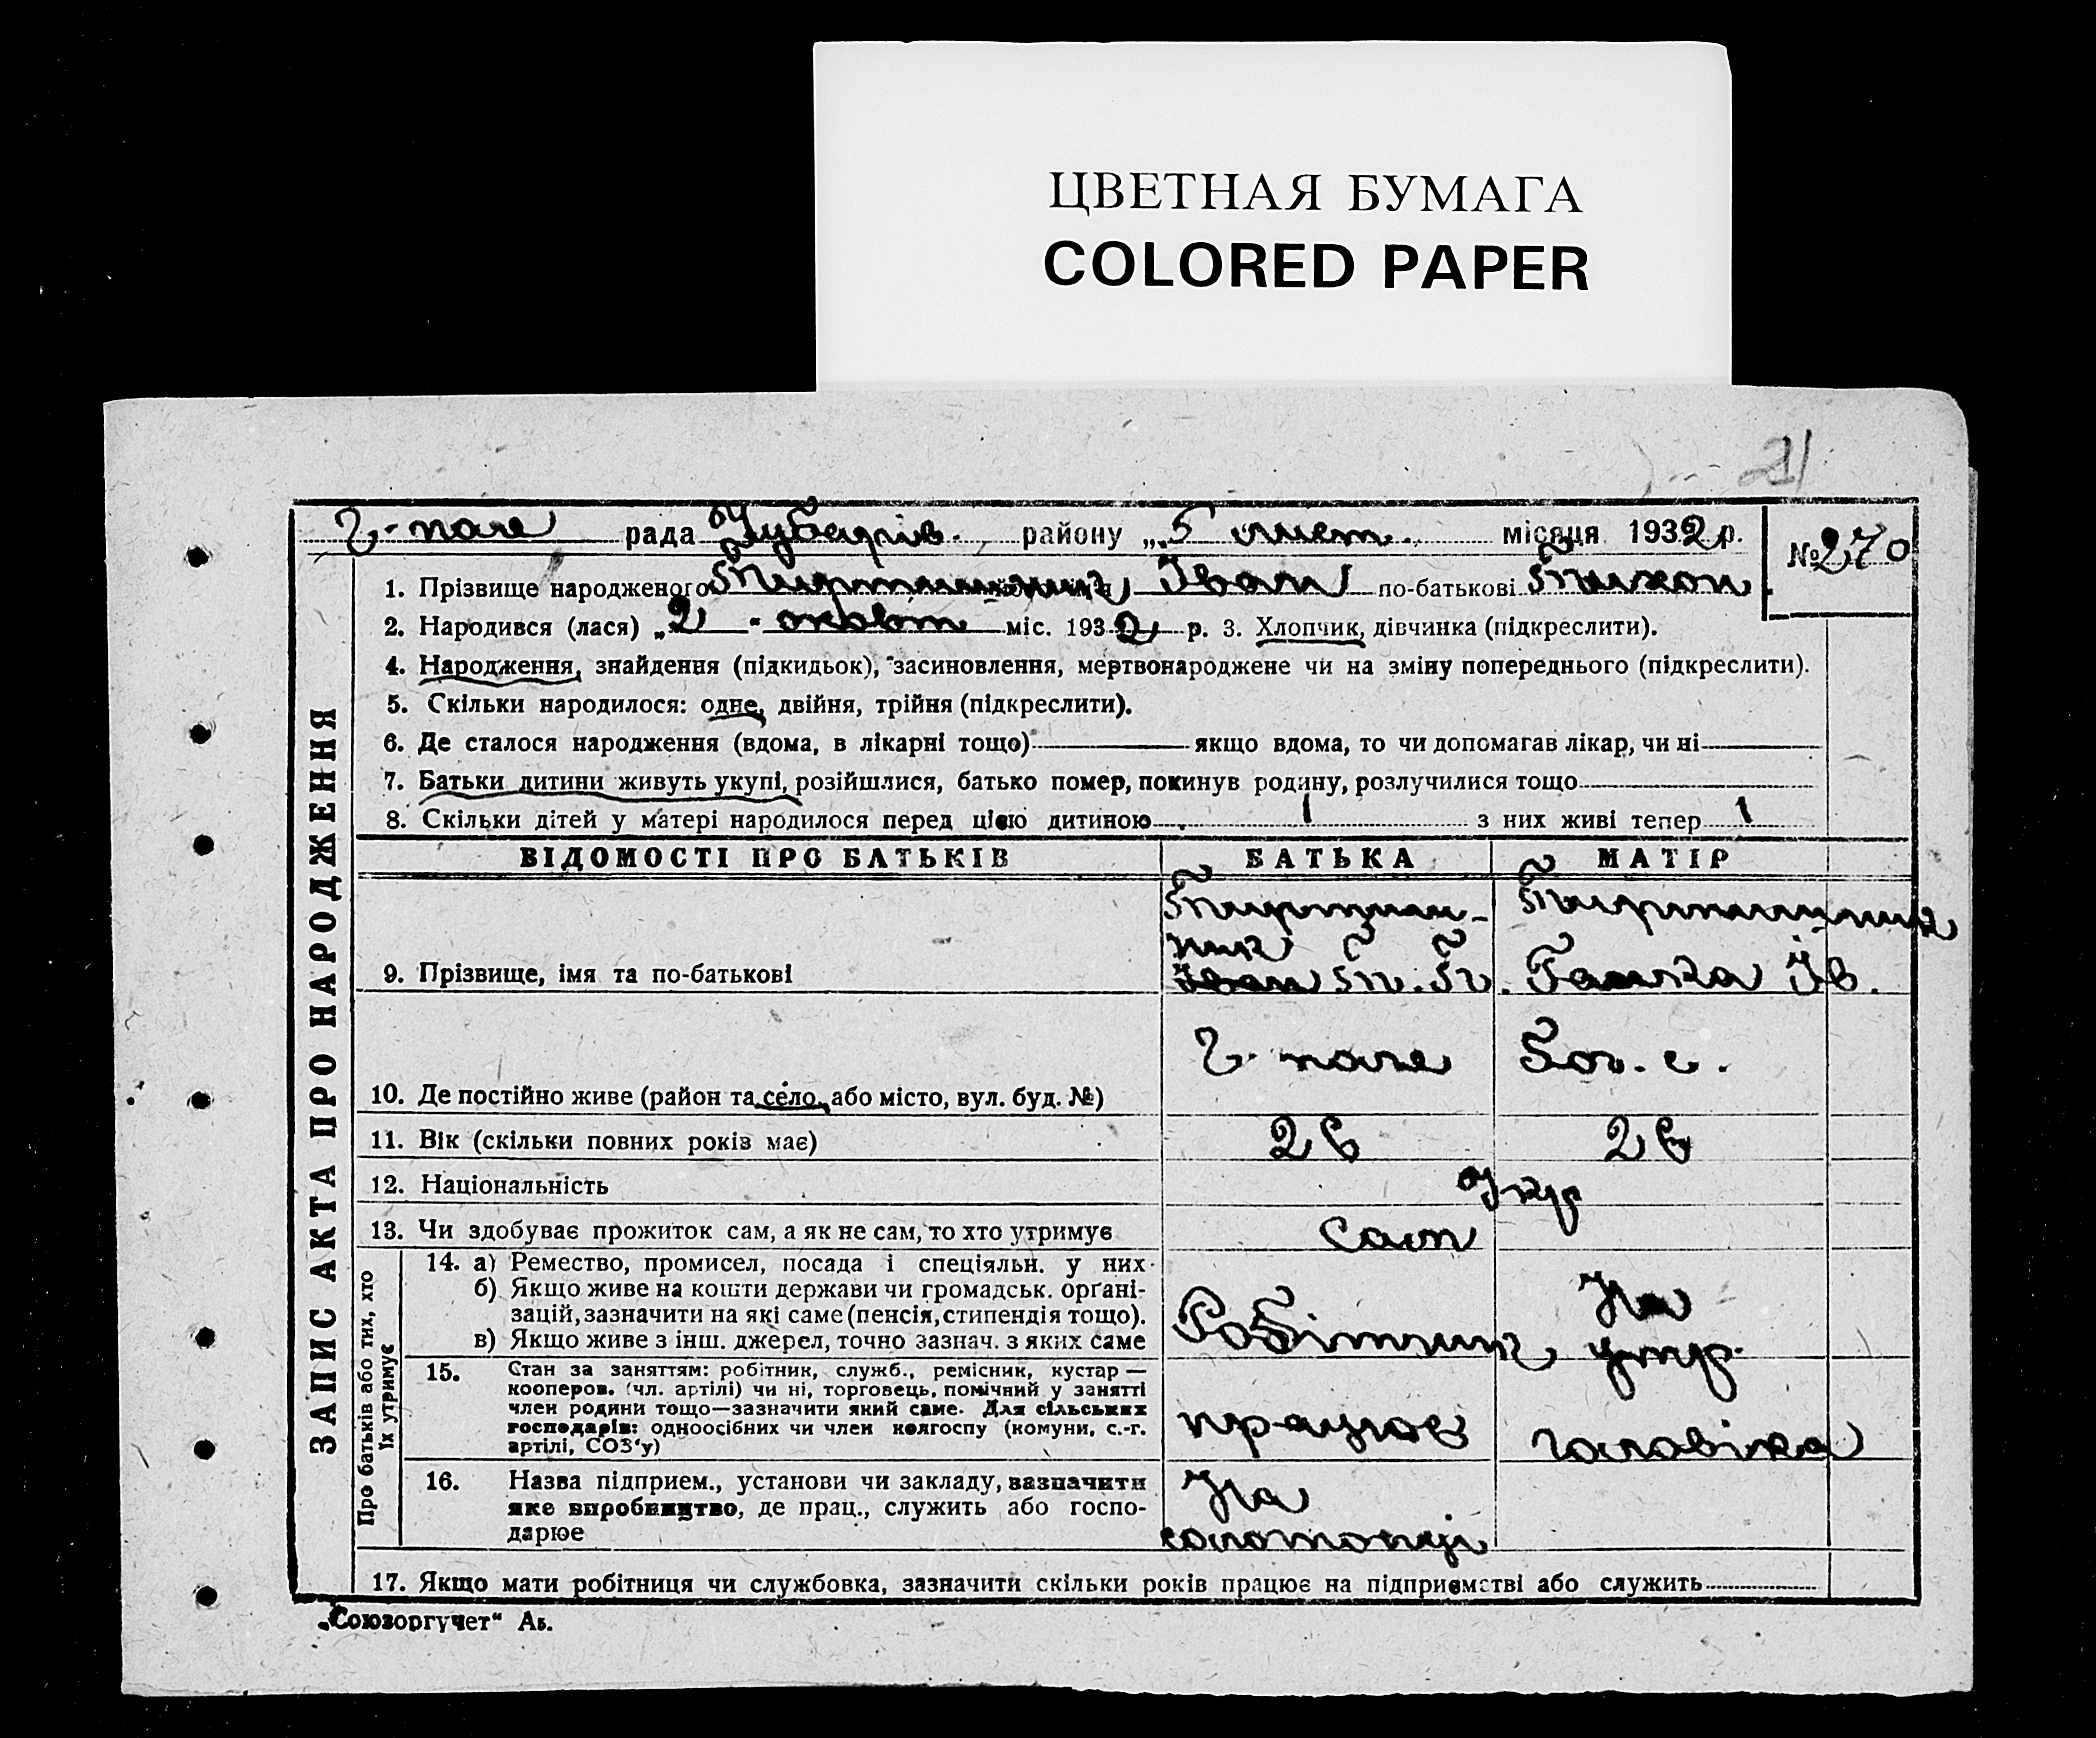 ЦВЕТНАЯ БУМАГА
COLORED PAPER
21
Г. поле рада Чубарів. району „5 лист. місяця 1932 р. №270
ЗАПИС АКТА ПРО НАРОДЖЕННЯ
1. Прізвище народженого Іван по-батькові Тихон
2. Народився (лася) „2 - жовт міс. 1932 р. 3. Хлопчик, дівчинка (підкреслити).
4. Народження, знайдення (підкидьок), засиновлення, мертвонароджене чи на зміну попереднього (підкреслити).
5. Скільки народилося: одне, двійня, трійня (підкреслити).
6. Де сталося народження (вдома, в лікарні тощо) якщо вдома, то чи допомагав лікар, чи ні
7. Батьки дитини живуть укупі, розійшлися, батько помер, покинув родину, розлучилися тощо
8. Скільки дітей у матері народилося перед цією дитиною 1 з них живі тепер 1
ВІДОМОСТІ ПРО БАТЬКІВ БАТЬКА МАТІР
9. Прізвище, імя та по-батькові Іван Т. Т. Ганна Ів.
10. Де постійно живе (район та село, або місто, вул. буд. №) Г. поле
11. Вік (скільки повних років має) 26 26
12. Національність Укр
13. Чи здобуває прожиток сам, а як не сам, то хто утримує Сам
Про батьків або тих, хто їх утримує
14. а) Ремество, промисел, посада і спеціяльн. у них
б) Якщо живе на кошти держави чи громадськ. орґані-
зацій, зазначити на які саме (пенсія, стипендія тощо).
в) Якщо живе з інш. джерел, точно зазнач. з яких саме
Робітник На утр.
15. Стан за заняттям: робітник, служб., ремісник, кустар —
кооперов. (чл. артілі) чи ні, торговець, помічний у занятті
член родини тощо—зазначити який саме. Для сільських
господарів: одноосібних чи член колгоспу (комуни, с.-г.
артілі, СОЗ‘у)
працює чоловіка
16. Назва підприєм., установи чи закладу, зазначити
яке виробництво, де прац., служить або госпо-
дарює
На
17. Якщо мати робітниця чи службовка, зазначити скільки років працює на підприємстві або служить
„Союзоргучет“ Аб.